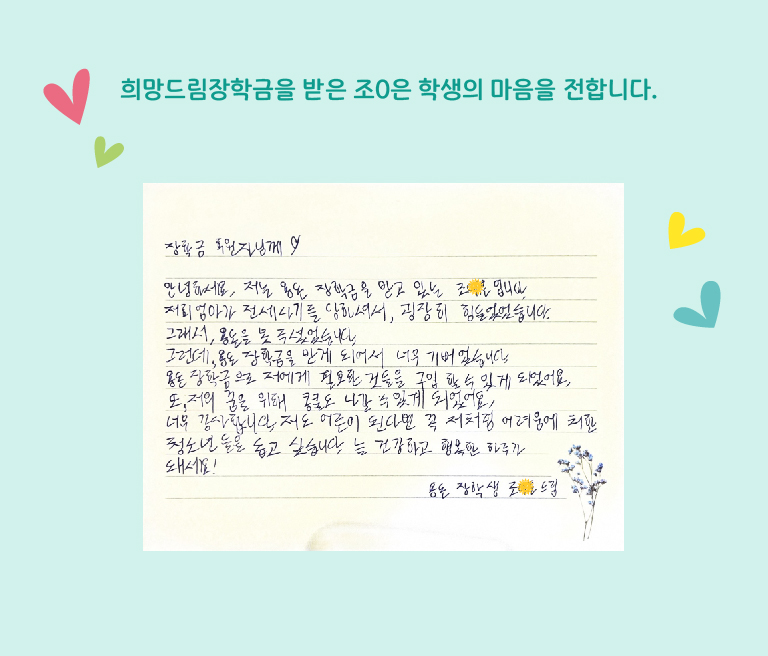 희망드림장학금을 받은 조O은 학생의 마음을 전합니다.
장학금 후원자님께
안녕하세요, 저는 용돈 장학금을 받고 있는 조 은 입니다.
저희 엄마가 전세사기를 당하셔서, 굉장히 힘들었었습니다.
그래서, 용돈을 못 주셨었습니다.
그런데, 용돈 장학금을 받게 되어서 너무 기뻤었습니다.
용돈 장학금으로 저에게 필요한 것들을 구입 할 수 있게 되었어요.
또, 저의 꿈을 위해 콩쿨도 나갈 수 있게 되었어요,
너무 감사합니다. 저도 어른이 된다면 꼭 저처럼 어려움에 처한
청소년들을 돕고 싶습니다. 늘 건강하고 행복한 하루가
돼세요!
용돈 장학생 조 드림